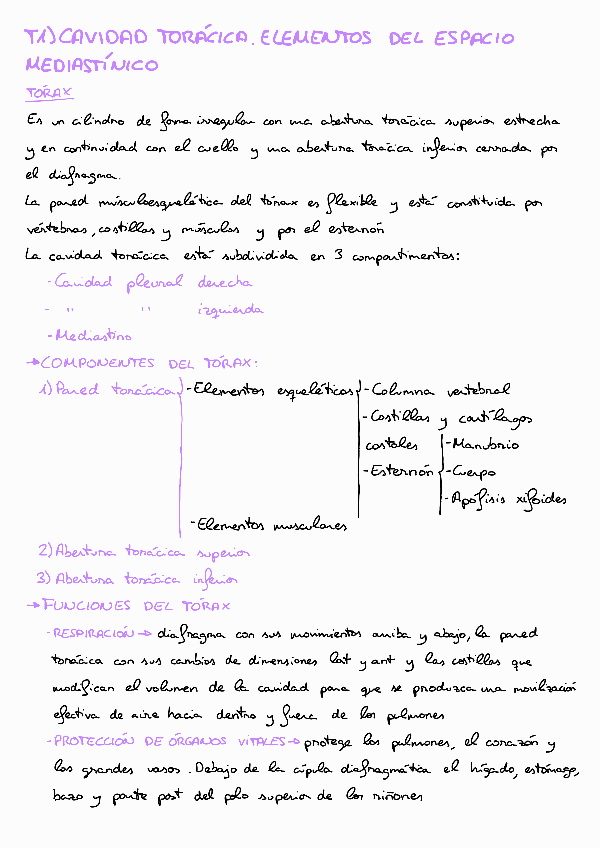 T1) CAVIDAD TORÁCICA. ELEMENTOS DEL ESPACIO
MEDIASTÍNICO
TÓRAX
Es un cilindro de forma irregular con una abertura torácica superior estrecha
y en continuidad con el cuello y una abertura torácica inferior cerrada por
el diafragma.
La pared músculoesquelética del tórax es flexible y está constituida por
vértebras, costillas y músculos y por el esternón
La cavidad torácica está subdividida en 3 compartimentos:
- Cavidad pleural derecha
- " " izquierda
- Mediastino
→ COMPONENTES DEL TÓRAX:
1) Pared torácica - Elementos esqueléticos - Columna vertebral
- Costillas y cartílagos
costales - Manubrio
- Esternón - Cuerpo
- Apófisis xifoides
- Elementos musculares
2) Abertura torácica superior
3) Abertura torácica inferior
→ FUNCIONES DEL TÓRAX
- RESPIRACIÓN → diafragma con sus movimientos arriba y abajo, la pared
torácica con sus cambios de dimensiones lat y ant y las costillas que
modifican el volumen de la cavidad para que se produzca una movilización
efectiva de aire hacia dentro y fuera de los pulmones
- PROTECCIÓN DE ÓRGANOS VITALES → protege los pulmones, el corazón y
los grandes vasos. Debajo de la cúpula diafragmática el hígado, estómago,
bazo y parte post del polo superior de los riñones